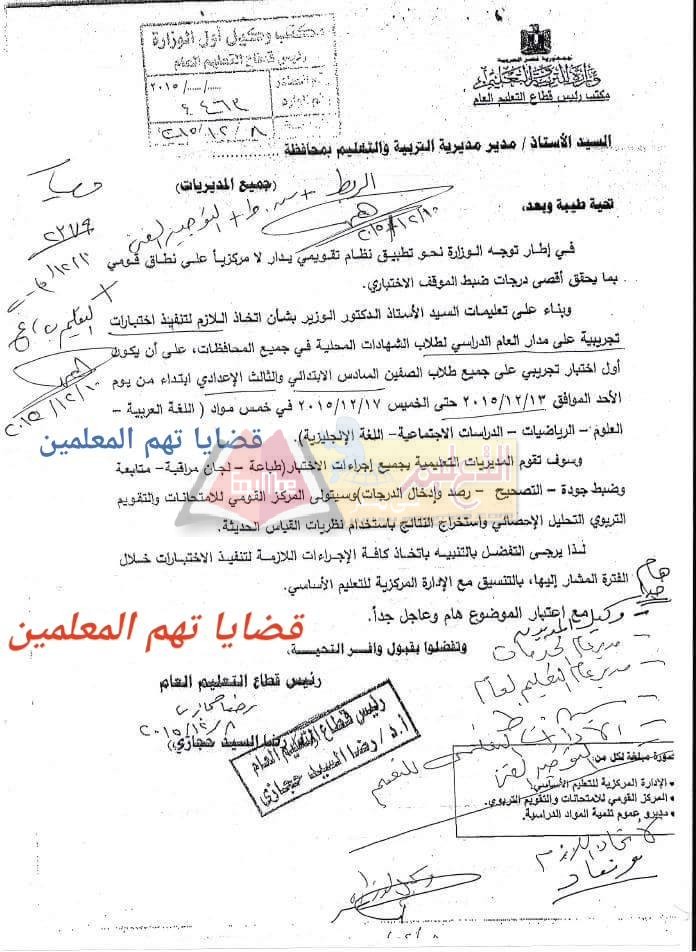 جمهورية مصر العربية
وزارة التربية والتعليم
مكتب رئيس قطاع التعليم العام
مكتب وكيل أول الوزارة
رئيس قطاع التعليم العام
٢٠١٥/..../....
٤٤٦٣
٢٠١٥/١٢/٨
السيد الأستاذ / مدير مديرية التربية والتعليم بمحافظة ..............
(جميع المديريات)
تحية طيبة وبعد،
في إطار توجه الوزارة نحو تطبيق نظام تقويمي يدار لا مركزياً على نطاق قومي
بما يحقق أقصى درجات ضبط الموقف الاختباري.
وبناء على تعليمات السيد الأستاذ الدكتور الوزير بشأن اتخاذ اللازم لتنفيذ اختبارات
تجريبية على مدار العام الدراسي لطلاب الشهادات المحلية في جميع المحافظات، على أن يكون
أول اختبار تجريبي على جميع طلاب الصفين السادس الابتدائي والثالث الإعدادي ابتداء من يوم
الأحد الموافق ٢٠١٥/١٢/١٣ حتى الخميس ٢٠١٥/١٢/١٧ في خمس مواد ( اللغة العربية –
العلوم – الرياضيات – الدراسات الاجتماعية – اللغة الإنجليزية).
قضايا تهم المعلمين
وسوف تقوم المديريات التعليمية بجميع إجراءات الاختبار(طباعة – لجان مراقبة – متابعة
وضبط جودة – التصحيح – رصد وإدخال الدرجات)وسيتولى المركز القومي للامتحانات والتقويم
التربوي التحليل الإحصائي واستخراج النتائج باستخدام نظريات القياس الحديثة.
لذا يرجى التفضل بالتنبيه باتخاذ كافة الإجراءات اللازمة لتنفيذ الاختبارات خلال
الفترة المشار إليها، بالتنسيق مع الإدارة المركزية للتعليم الأساسي.
هام
جداً
مع اعتبار الموضوع هام وعاجل جداً.
قضايا تهم المعلمين
وتفضلوا بقبول وافر التحية.
وكيل المديرية
مدير عام الخدمات
مدير عام التعليم العام
رئيس قطاع التعليم العام
رضا حجازي
٢٠١٥/١٢/٨
رضا السيد حجازي)
رئيس قطاع التعليم العام
أ.د/ رضا السيد حجازي
صورة مبلغة لكل من:
• الإدارة المركزية للتعليم الأساسي.
• المركز القومي للامتحانات والتقويم التربوي.
• مديرو عموم تنمية المواد الدراسية.
لاتخاذ اللازم